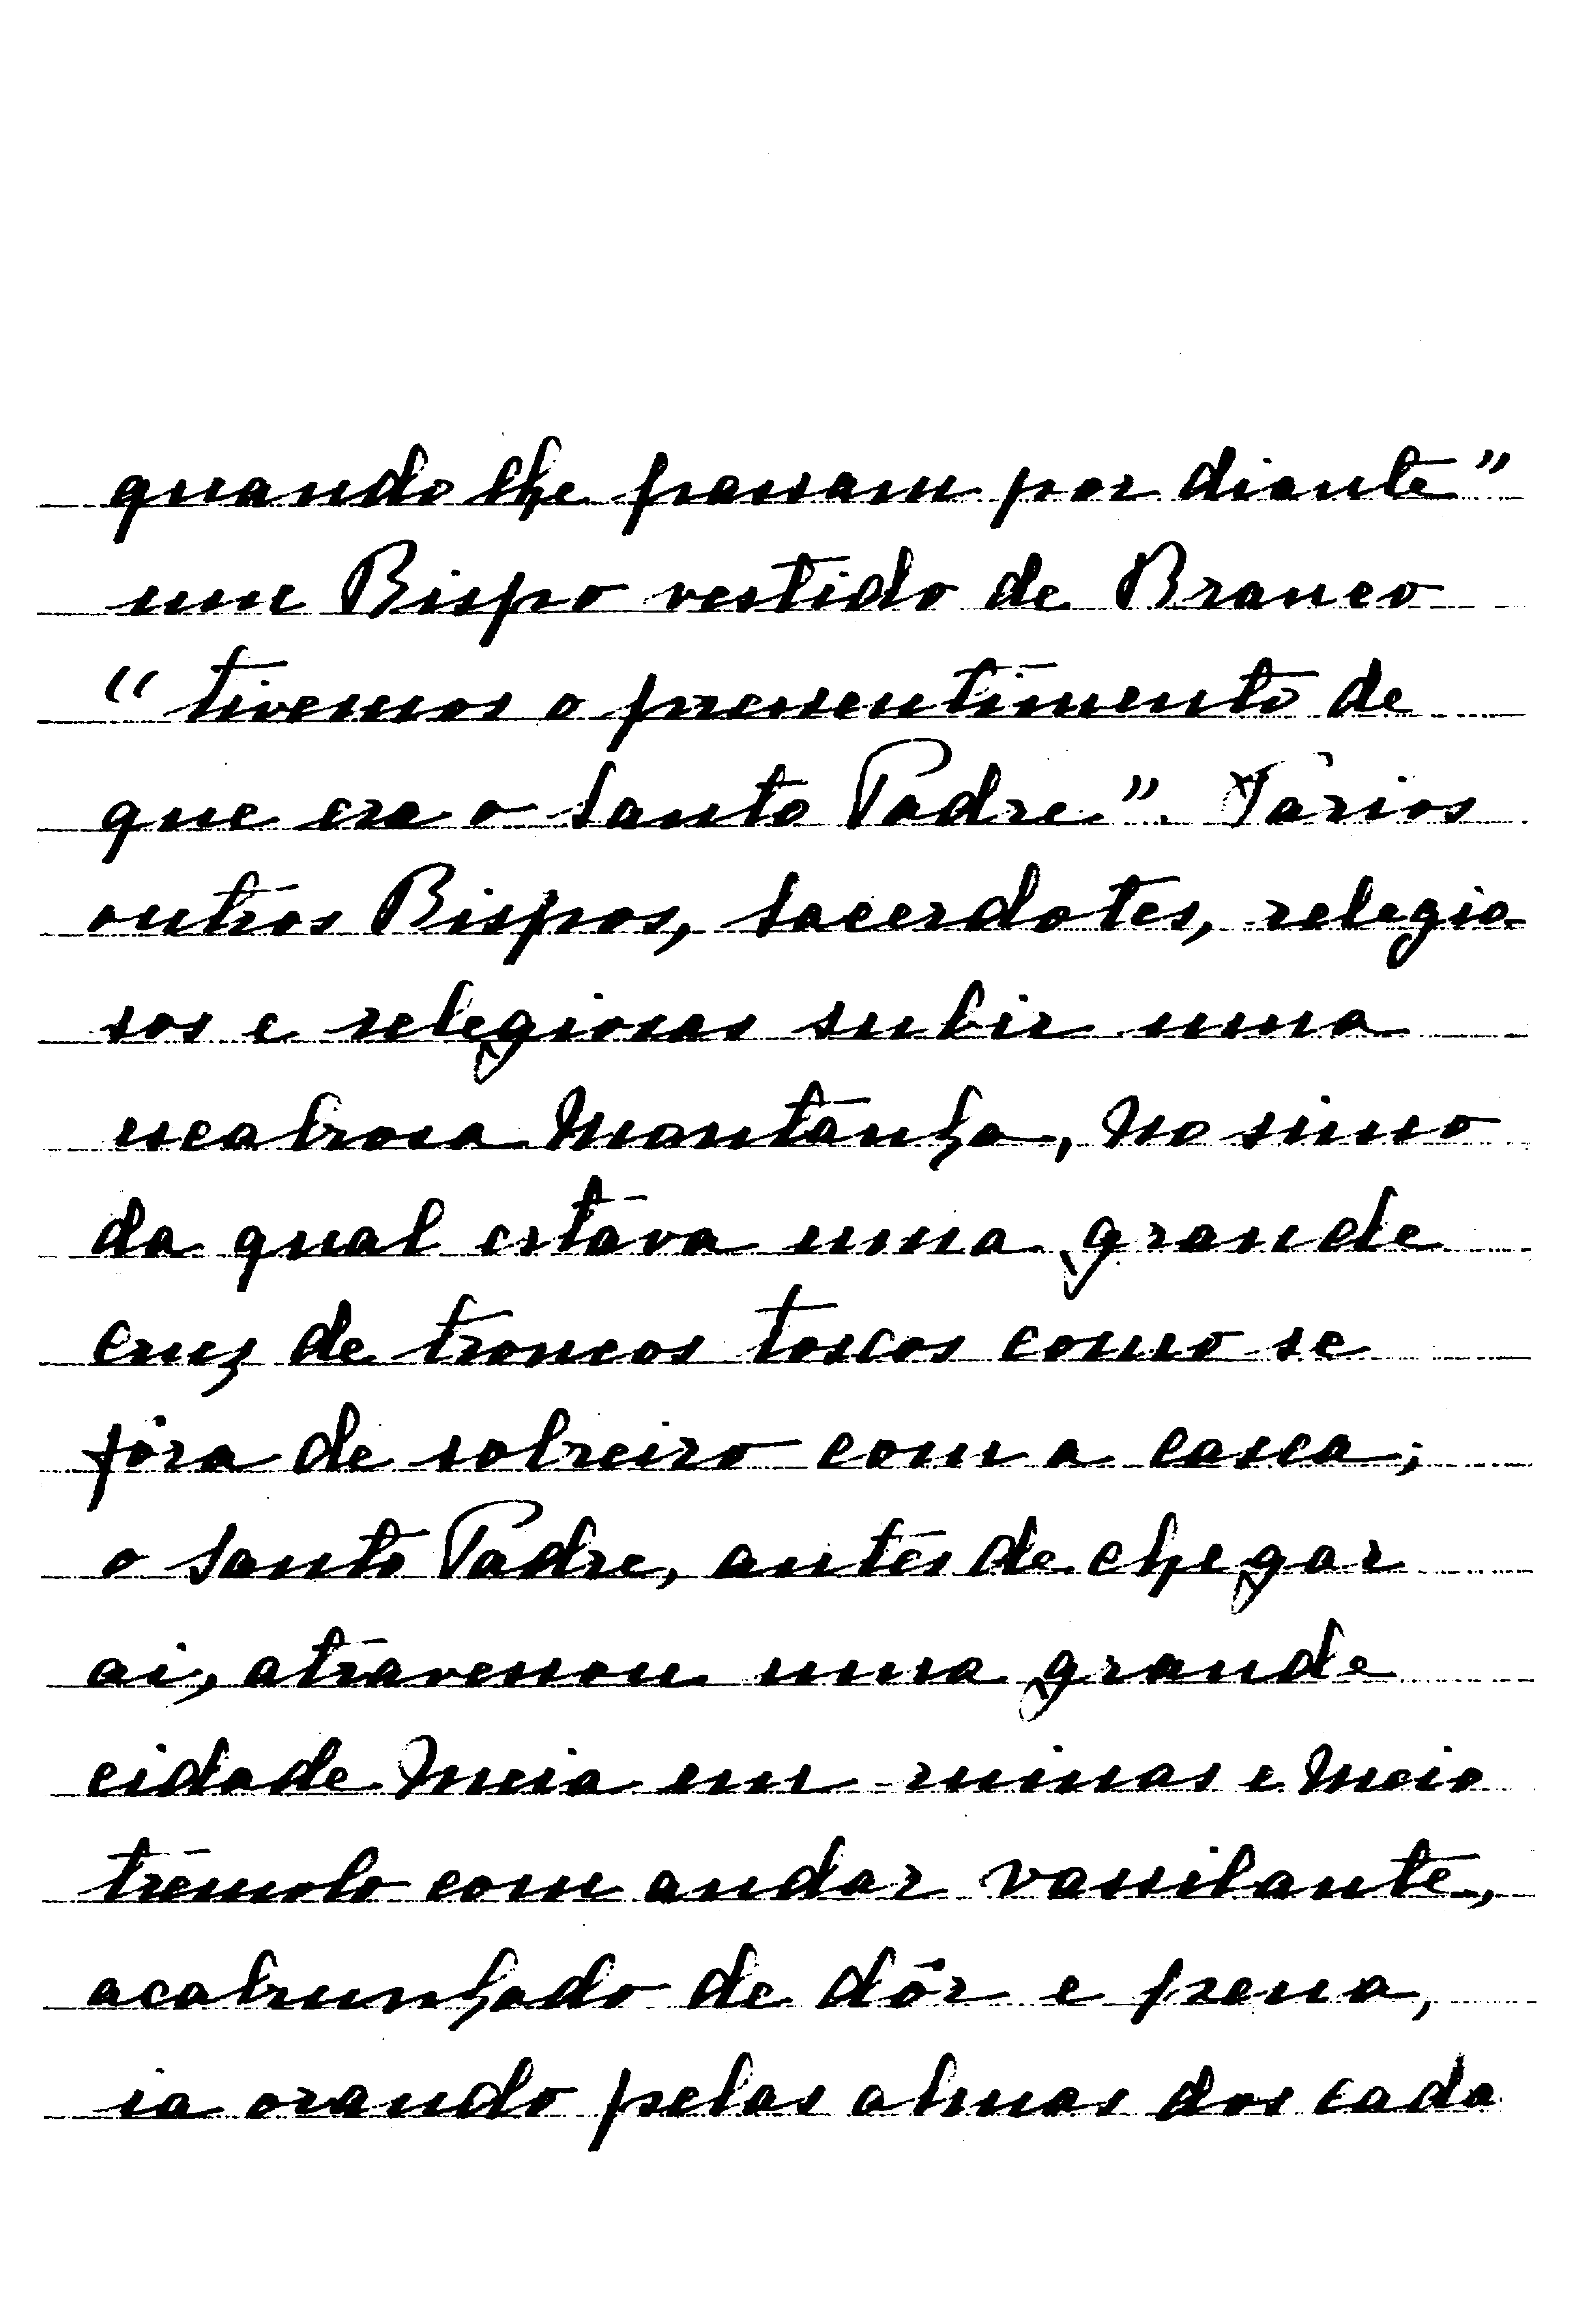 quando lhe passam por diante”
um Bispo vestido de Branco
“tivemos o pressentimento de
que era o Santo Padre”. Varios
outros Bispos, sacerdotes, relegio-
sos e relegiosas subir uma
escabrosa montanha, no simo
da qual estava uma grande
cruz de troncos toscos como se
fôra de sobreiro com a casca;
o Santo Padre, antes de chegar
ai, atravessou uma grande
cidade meia em ruinas e meio
trémolo com andar vassilante,
acabrunhado de dôr e pena,
ia orando pelas almas dos cada